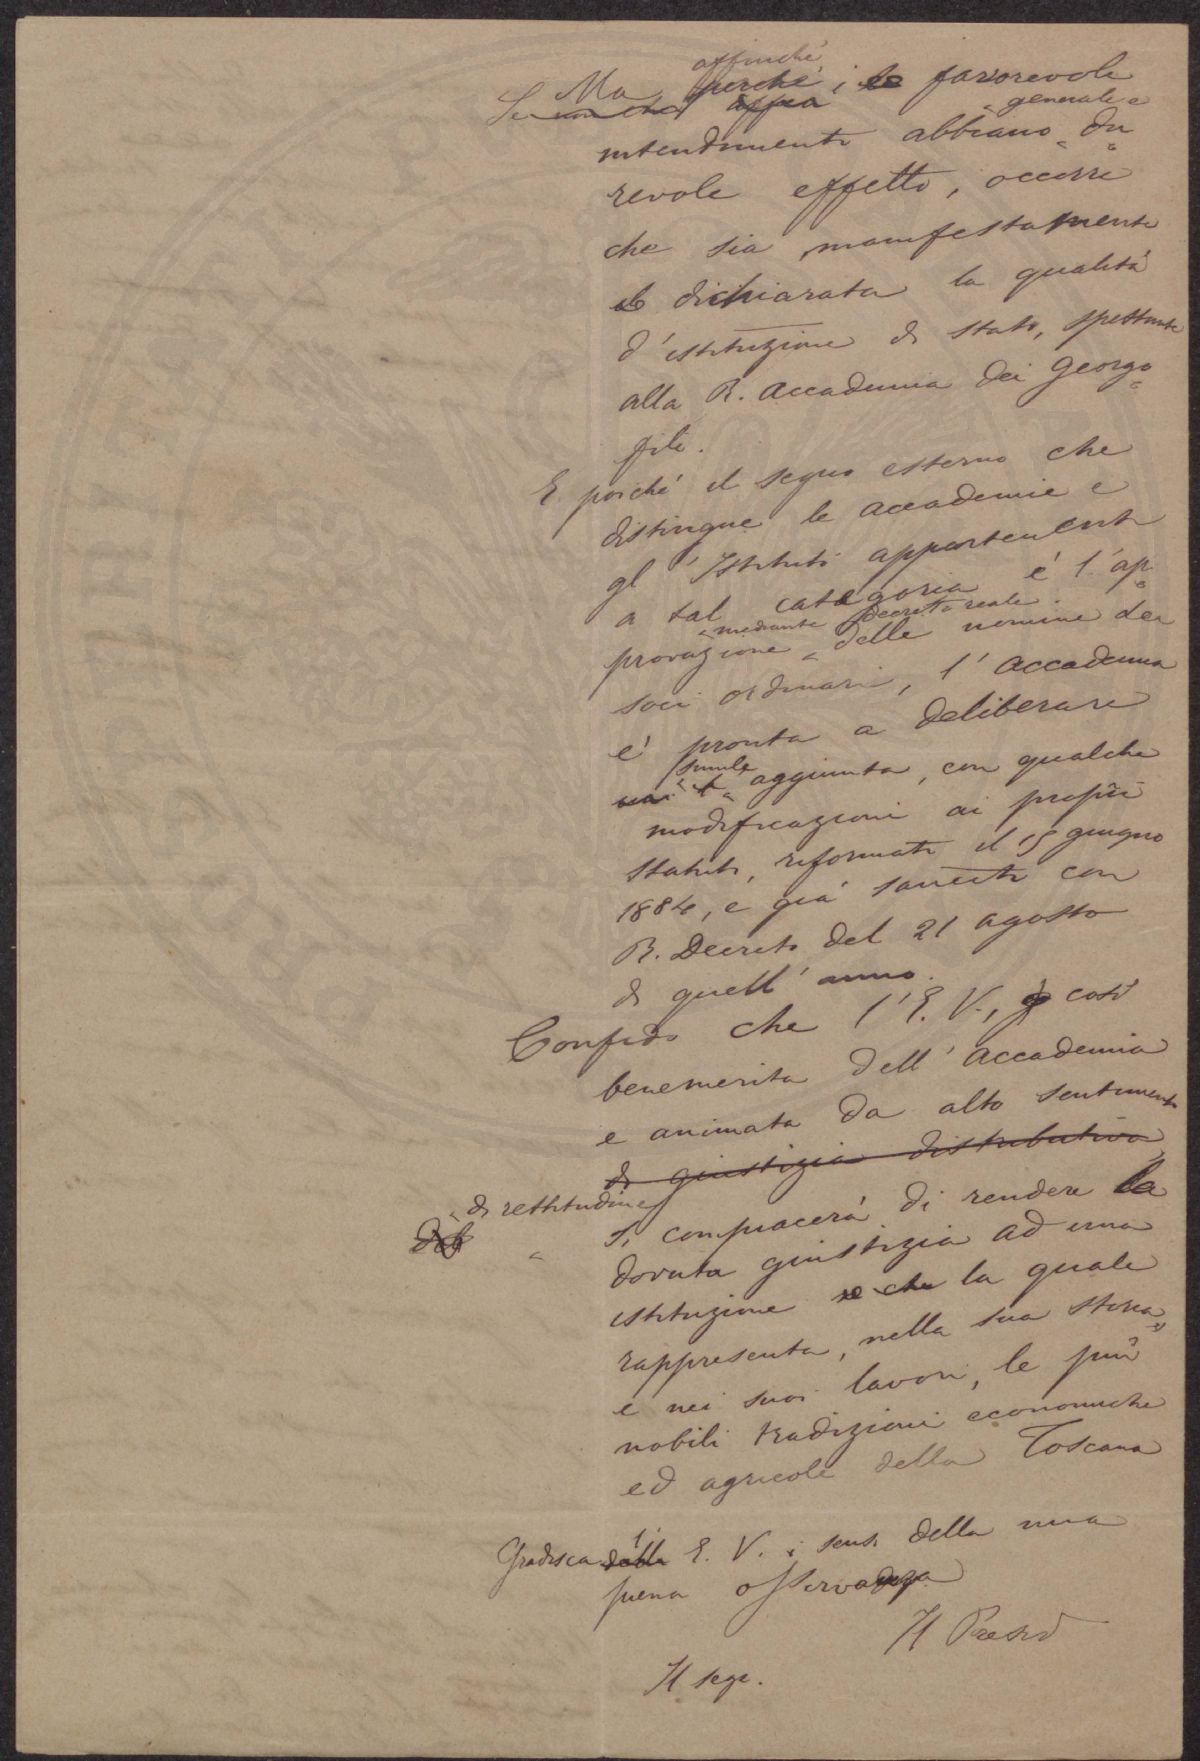 affinché
Ma perché i le favorevole
Se non che appia generale e
intendimenti abbiano du
revole effetto, occorre
che sia manifestamente
dichiarata la qualità
d'istituzione di stato, spettante
alla R. Accademia dei Georgo
fili.
E poiché il segno esterno che
distingue le accademie e
gl'Istituti appartenenti
a tal categoria è l'ap
mediante decreto reale
provazione delle nomine dei
soci ordinari, l'Accademia
è pronta a deliberare
simile
aggiunta, con qualche
modificazioni ai propri
statuti, riformati il 15 giugno
1884, e già sanciti con
R. Decreto del 21 agosto
di quell'anno.
Confido che l'E. V., così
benemerita dell'Accademia
e animata da alto sentimento
di giustizia distributiva,
di rettitudine
si compiacerà di rendere la
dovuta giustizia ad una
istituzione che la quale
rappresenta, nella sua storia
e nei suoi lavori, le più
nobili tradizioni economiche
ed agricole della Toscana
l'
Gradisca della E. V. i sensi della mia
piena osservanza
Il Presid
Il segr.